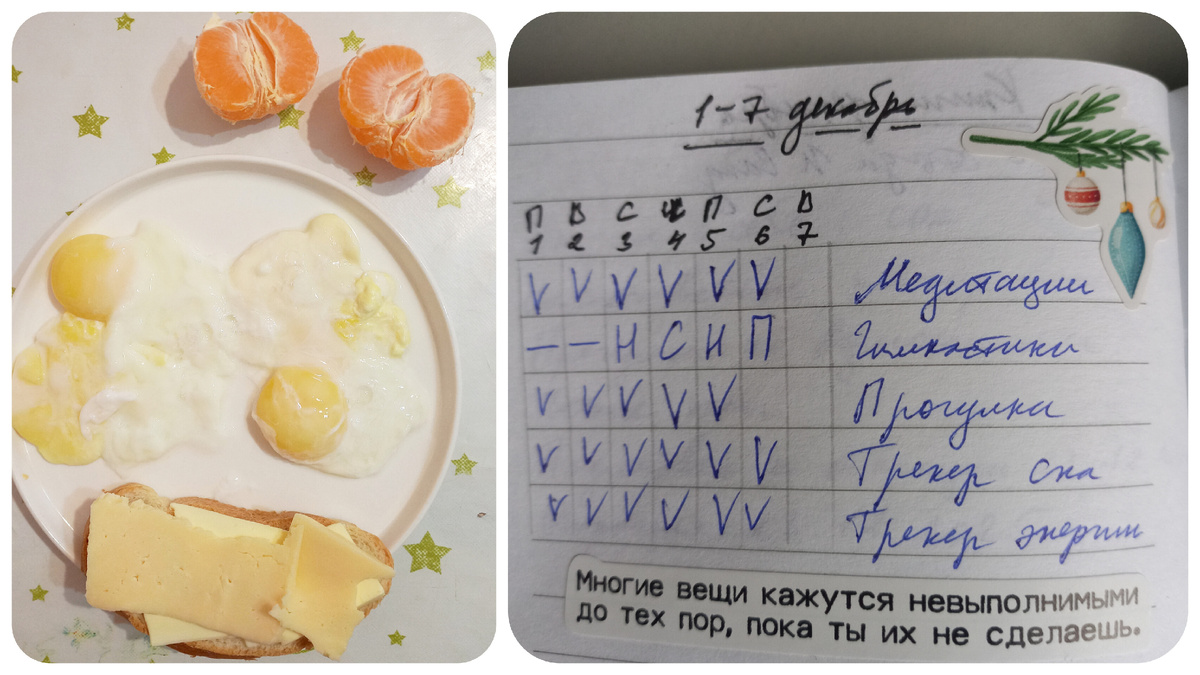 1-7 декабрь
П В С Ч П С В
1 2 3 4 5 6 7
V V V V V V Медитации
— — Н С Н П Гимнастики
V V V V V Прогулка
V V V V V V Трекер сна
V V V V V V Трекер энергии
Многие вещи кажутся невыполнимыми
до тех пор, пока ты их не сделаешь.